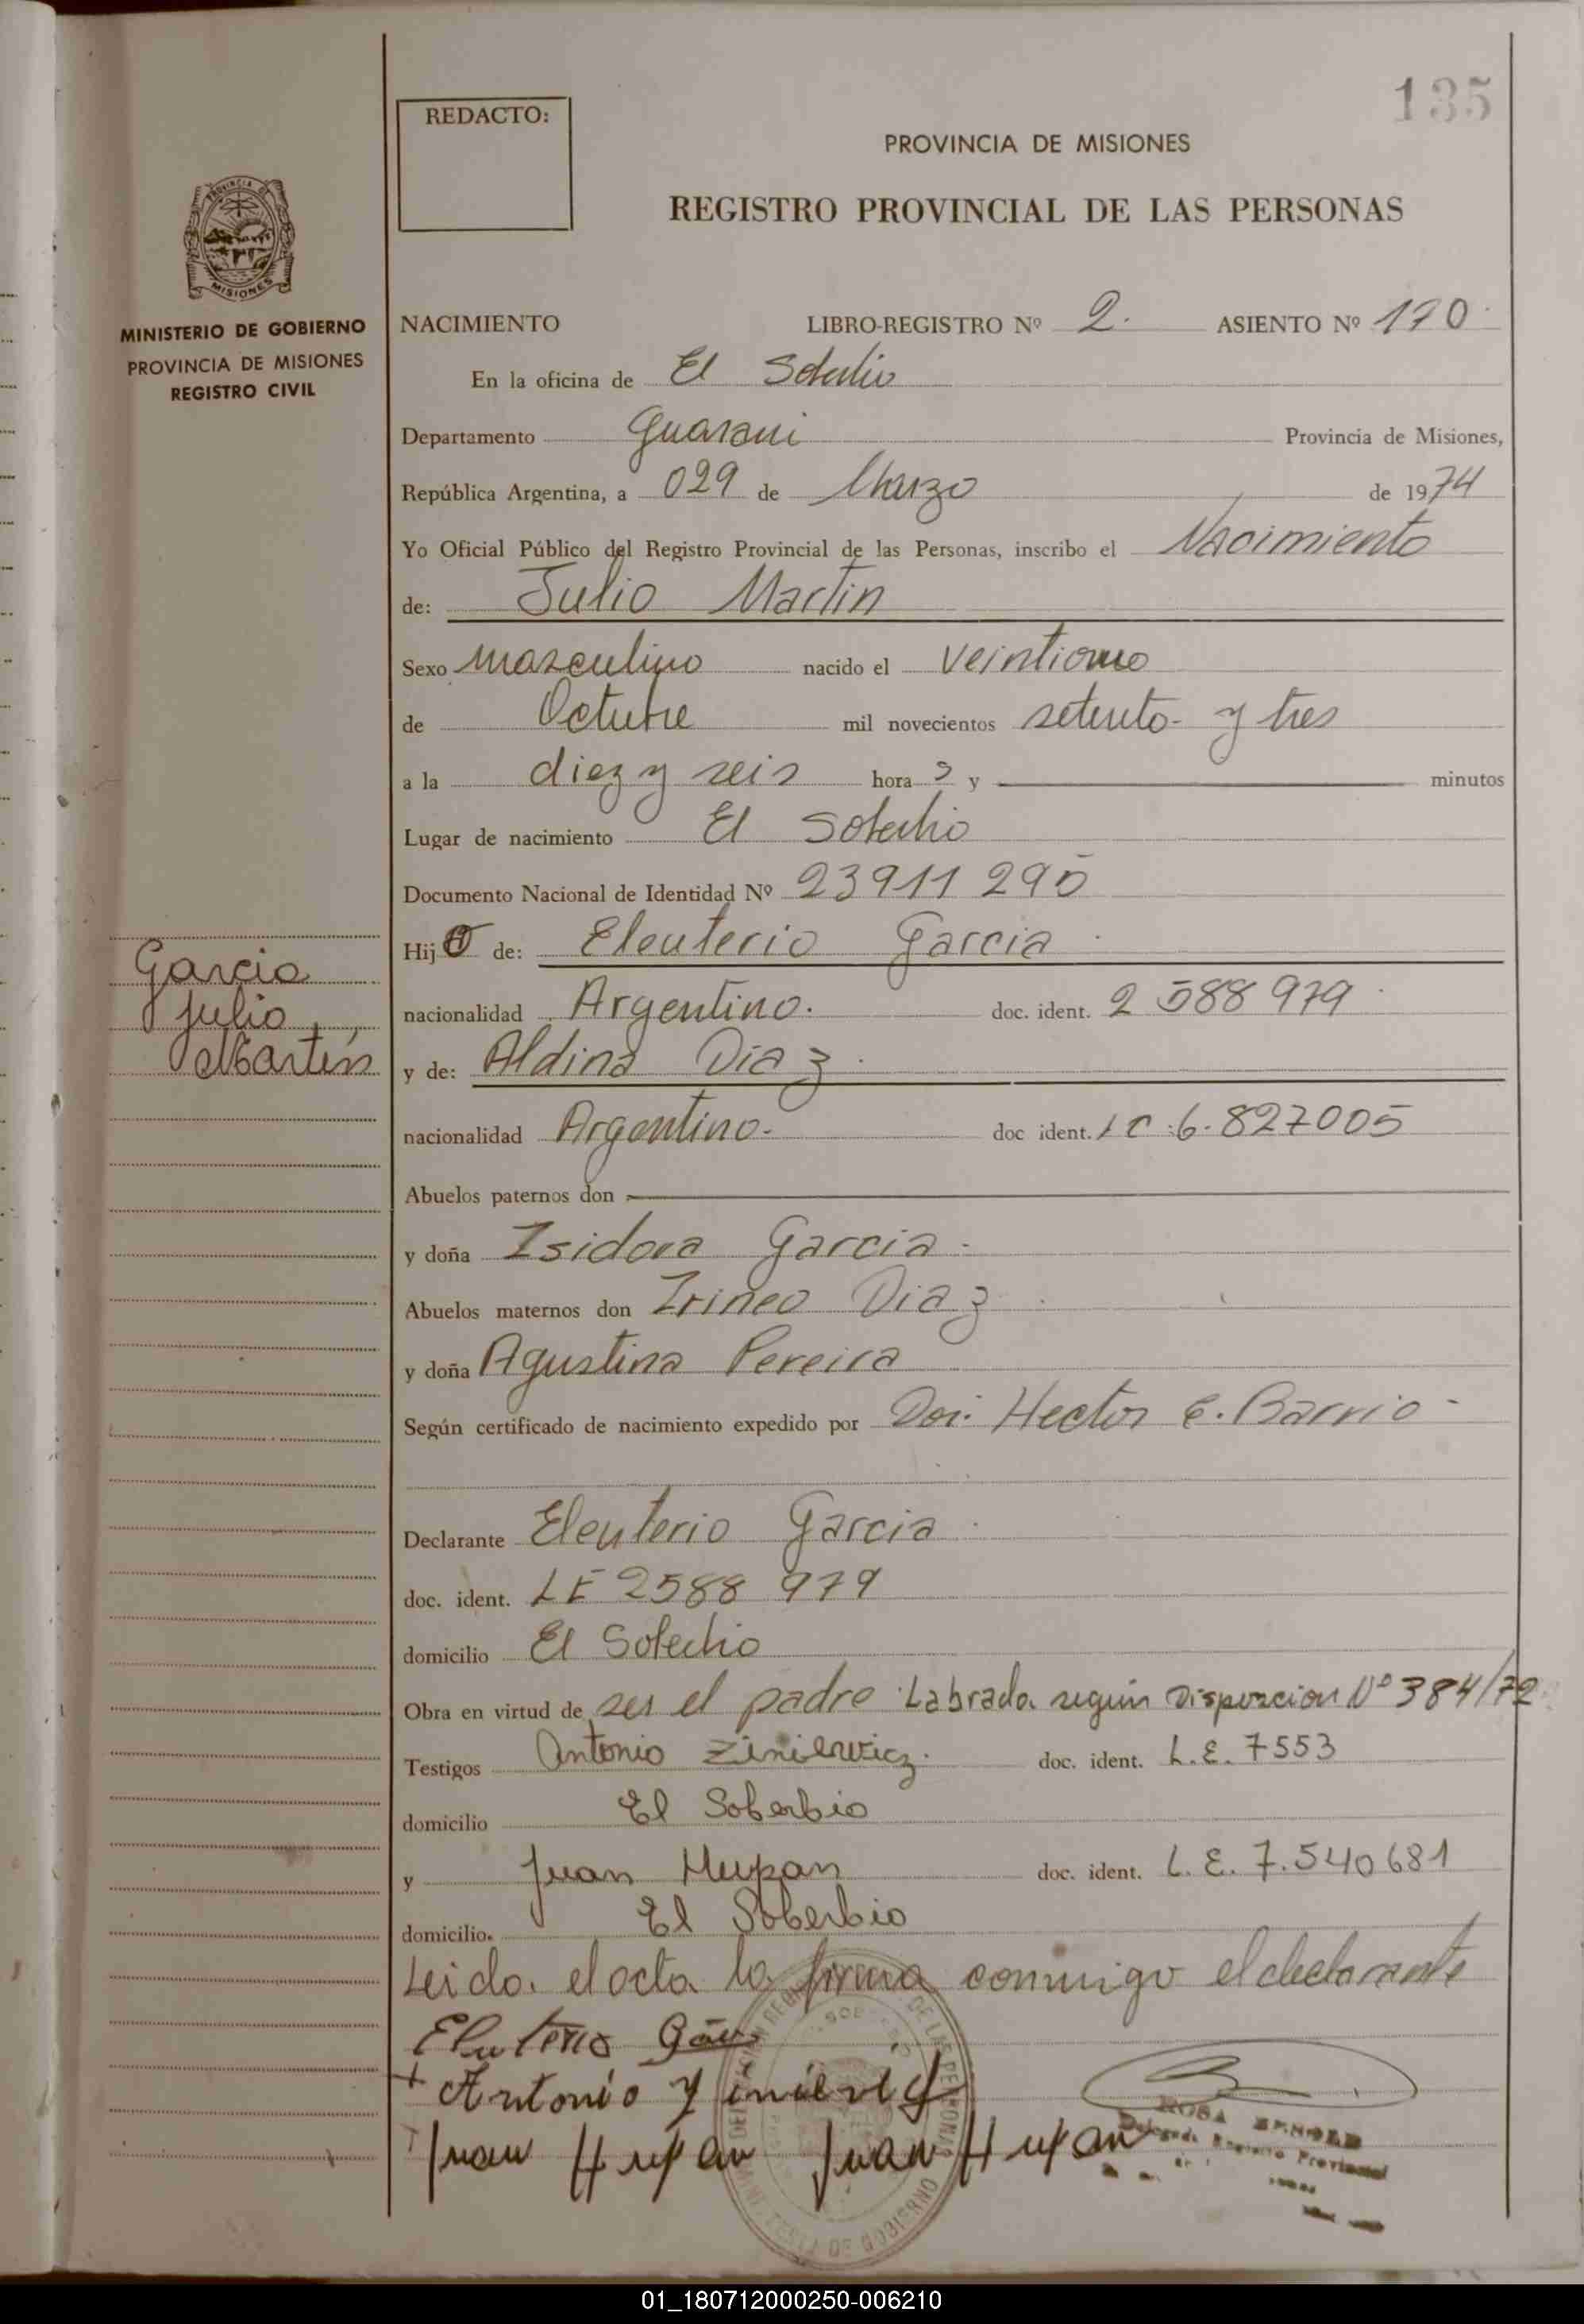 135
REDACTO:
PROVINCIA DE MISIONES
REGISTRO PROVINCIAL DE LAS PERSONAS
PROVINCIA DE
MISIONES
MINISTERIO DE GOBIERNO
PROVINCIA DE MISIONES
REGISTRO CIVIL
NACIMIENTO LIBRO-REGISTRO Nº 2. ASIENTO Nº 170
En la oficina de El Soberbio
Departamento Guarani Provincia de Misiones,
República Argentina, a 029 de Marzo de 1974
Yo Oficial Público del Registro Provincial de las Personas, inscribo el Nacimiento
de: Julio Martin
Sexo masculino nacido el
de Octubre mil novecientos setenta y tres
a la diez y seis hora s y minutos
Lugar de nacimiento El Soberbio
Documento Nacional de Identidad Nº 23911 295
Hijo de: Eleuterio Garcia
nacionalidad Argentino. doc. ident. 2 588 979
y de: Aldina Diaz
nacionalidad Argentino. doc ident. LC:6.827005
Abuelos paternos don
y doña Isidora Garcia
Abuelos maternos don Irineo Diaz
y doña Agustina Pereira
Según certificado de nacimiento expedido por Hector E. Barrio
Garcia
Julio
Martín
Declarante Eleuterio Garcia
doc. ident. LE 2588 979
domicilio El Soberbio
Obra en virtud de ser el padre Labrada según Disposcion Nº 384/72
Testigos Antonio Ziniewicz. doc. ident. L.E. 7553
domicilio El Soberbio
y Juan Hupan doc. ident. L.E. 7.540681
domicilio. El Soberbio
Leido el acta la firma conmigo el declarante
Juan Hupan Juan Hupan
Antonio
ROSA
Delegada Registro Provincial
01_180712000250-006210